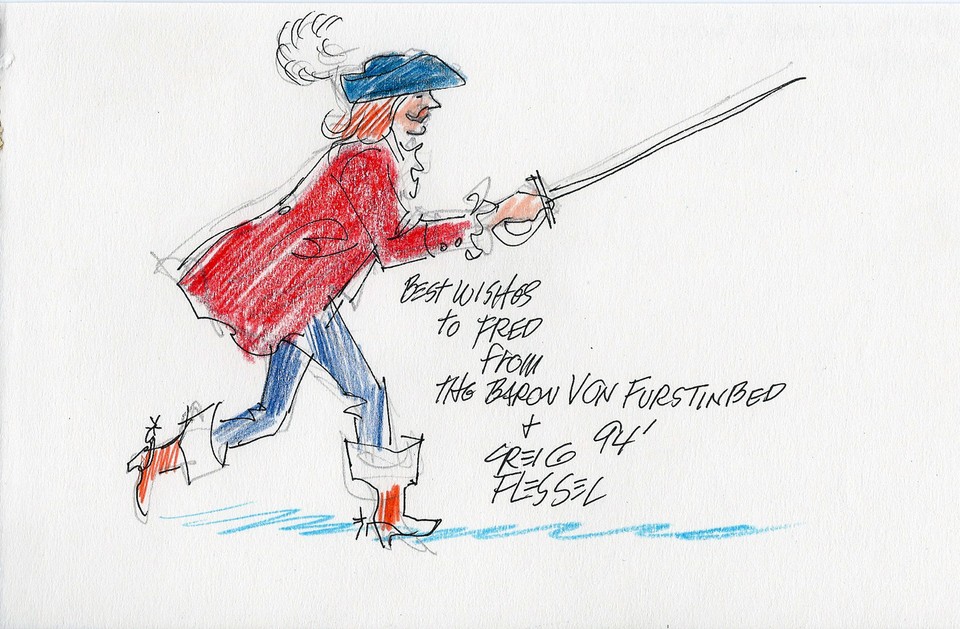 BEST WISHES
to FRED
from
THE BARON VON FURSTINBED
+
CREIG 94'
FLESSEL